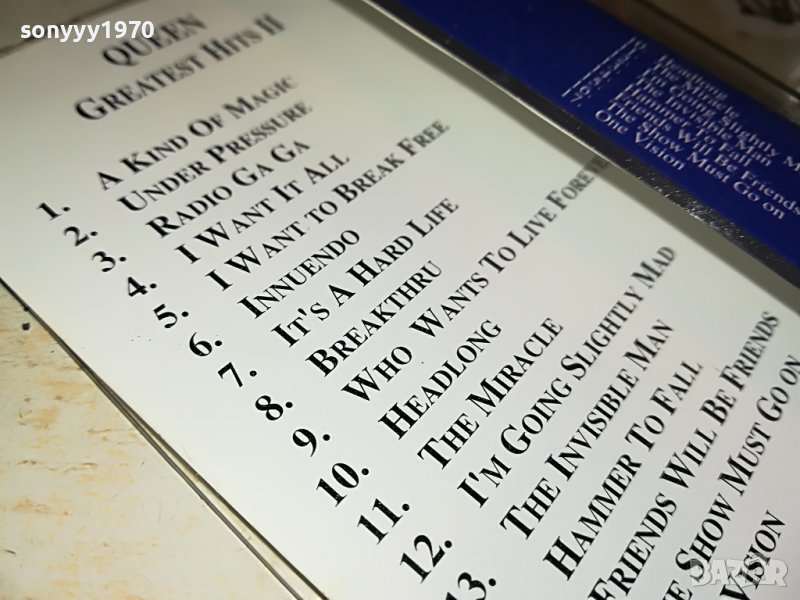 sonyyy1970
QUEEN
GREATEST HITS II
1. A KIND OF MAGIC
2. UNDER PRESSURE
3. RADIO GA GA
4. I WANT IT ALL
5. I WANT TO BREAK FREE
6. INNUENDO
7. IT'S A HARD LIFE
8. BREAKTHRU
9. WHO WANTS TO LIVE FOREVE
10. HEADLONG
11. THE MIRACLE
12. I'M GOING SLIGHTLY MAD
13. THE INVISIBLE MAN
HAMMER TO FALL
FRIENDS WILL BE FRIENDS
E SHOW MUST GO ON
VISION
Headlong
The Miracle
I'm Going Slightly M
The Invisible Man
Hammer to Fall
Friends Will Be Friends
The Show Must Go on
One Vision
BAZAR
bg